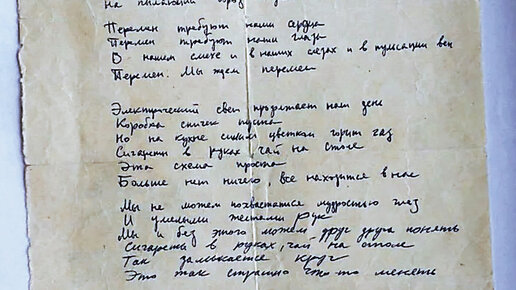 на пылающий город
Перемен требуют наши сердца
Перемен требуют наши глаза
В нашем смехе и в наших слезах и в пульсации вен
Перемен. Мы ждем перемен
Электрический свет продолжает наш день
Коробка спичек пуста
Но на кухне синим цветком горит газ
Сигареты в руках, чай на столе
Эта схема проста
Больше нет ничего, все находится в нас
Мы не можем похвастаться мудростью глаз
И умелыми жестами рук
Мы и без этого можем друг друга понять
Сигареты в руках, чай на столе
Так замыкается круг
Это так страшно что-то менять